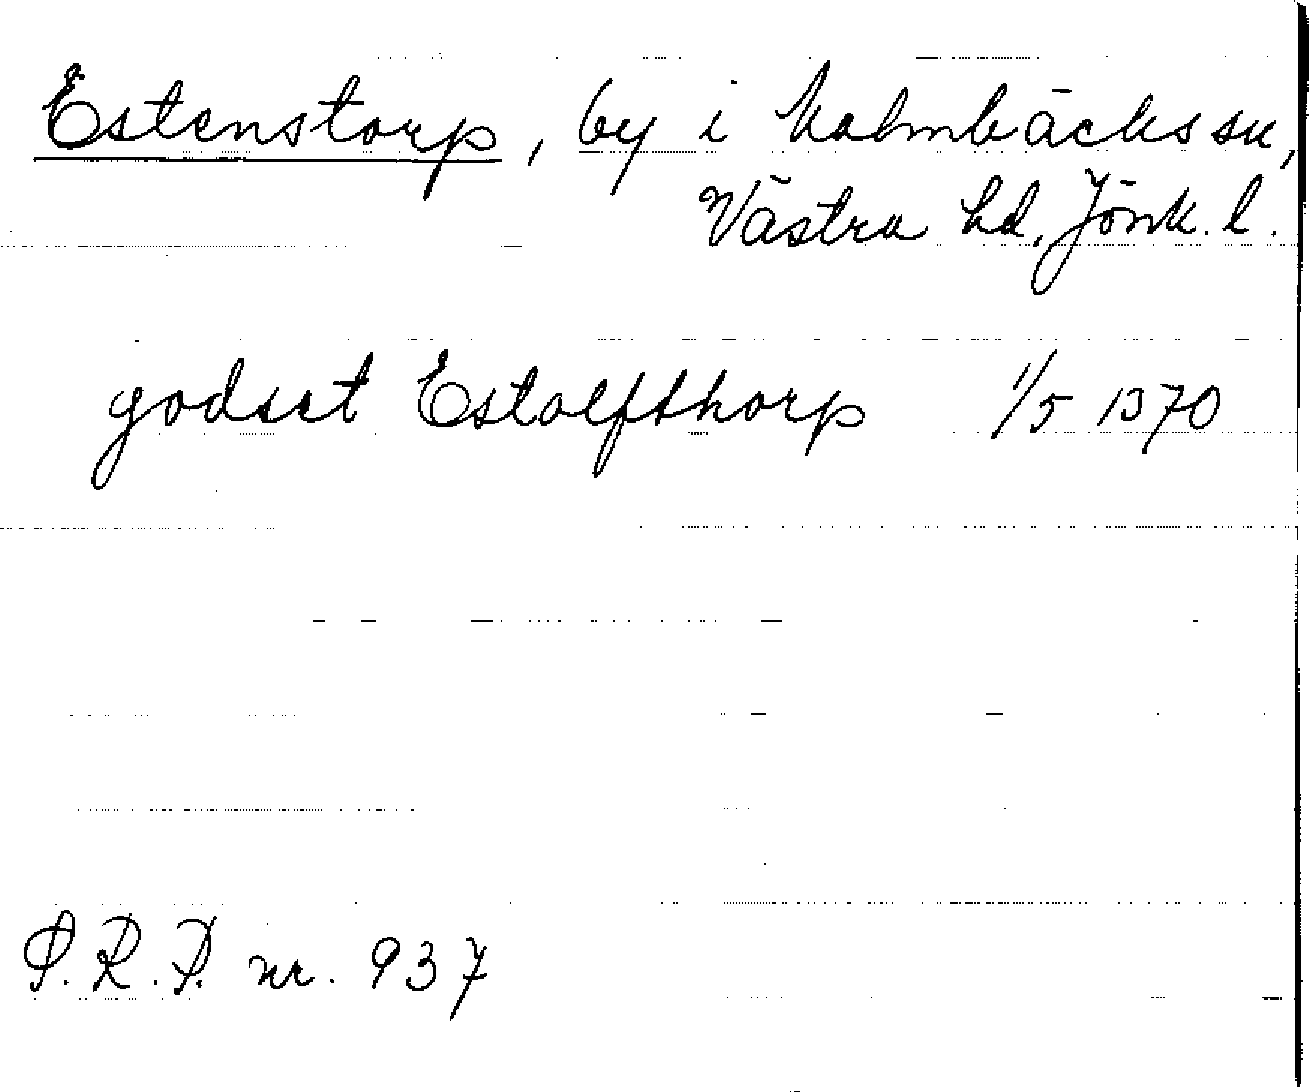 Estenstorp, by i Malmbäcks sn,
Västra hd, Jönk. l.
godset Estolfsthorp 1/5 1370
S.R.P. nr. 937